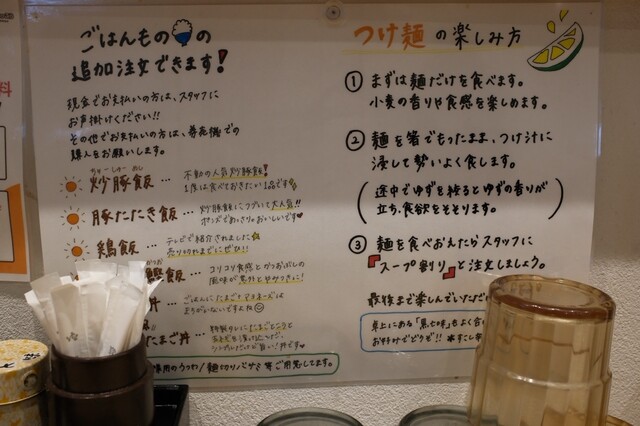 ごはんもの の
追加注文できます!
現金でお支払いの方は、スタッフに
お声掛けください!!
その他でお支払いの方は、券売機での
購入をお願いします。
ちゃーしゅーめし
炒豚飯 … 不動の人気炒豚飯!
1度は食べておきたい1品です
豚たたき飯 … 炒豚飯につづいて大人気!!
ポンズでめっさりがおいしいです
鶏飯 … テレビで紹介されました
売り切れまでにぜひ!!
鰹飯 … コリコリ食感とかつおぶしの
風味が意外とやみつきに!
丼 … ごはんにたまご、マヨネーズは
まちがいないですよね
たまご丼 …
用のうつわ/麺切りバサミ等ご用意してます。
つけ麺の楽しみ方
① まずは麺だけを食べます。
小麦の香りや食感を楽しめます。
② 麺を箸でもったまま、つけ汁に
浸して勢いよく食します。
(途中でゆずを絞るとゆずの香りが
立ち、食欲をそそります。)
③ 麺を食べおえたらスタッフに
『スープ割り』と注文しましょう。
最後まで楽しんでいただ
卓上にある「黒七味」もよく合
お好みでどうぞ!! *すこし辛